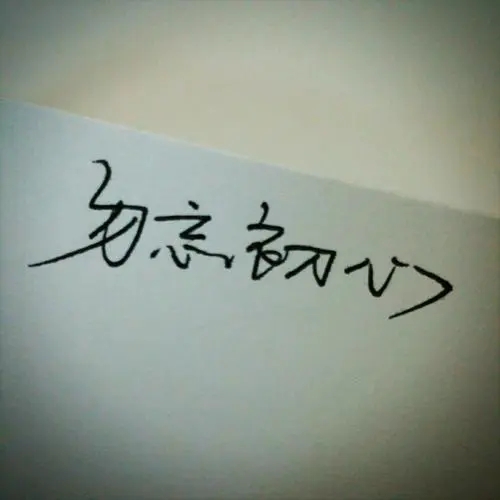 勿忘初心